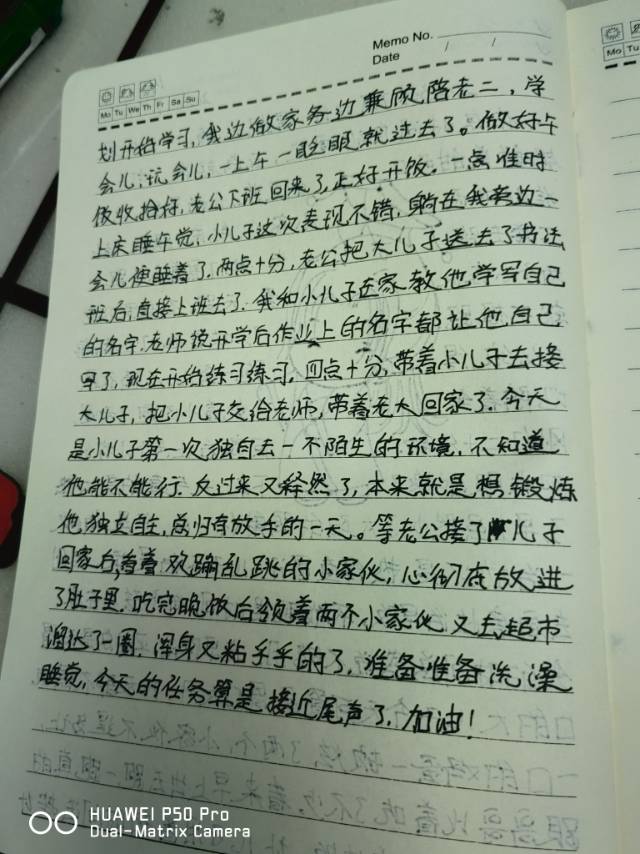 Memo No.
Date / /
Mo Tu We Th Fr Sa Su
Mo Tu
划开始学习,我边做家务边兼顾陪老二,学
会儿,玩会儿,一上午一眨眼就过去了。做好午
饭收拾好,老公下班回来了,正好开饭。一点准时
上床睡午觉,小儿子这次表现不错,躺在我旁边一
会儿便睡着了.两点十分,老公把大儿子送去了书法
班后,直接上班去了.我和小儿子在家教他学写自己
的名字.老师说开学后作业上的名字都让他自己
写了,现在开始练习练习.四点十分,带着小儿子去接
大儿子,把小儿子交给老师,带着老大回家了.今天
是小儿子第一次独自去一个陌生的环境,不知道
他能不能行.反过来又释然了,本来就是想锻炼
他独立自主,总归有放手的一天。等老公接了儿子
回家后,看着欢蹦乱跳的小家伙,心彻底放进
了肚子里.吃完晚饭后领着两个小家伙又去超市
溜达了一圈.浑身又粘乎乎的了.准备准备洗澡
睡觉,今天的任务算是接近尾声了.加油!
HUAWEI P50 Pro
Dual-Matrix Camera